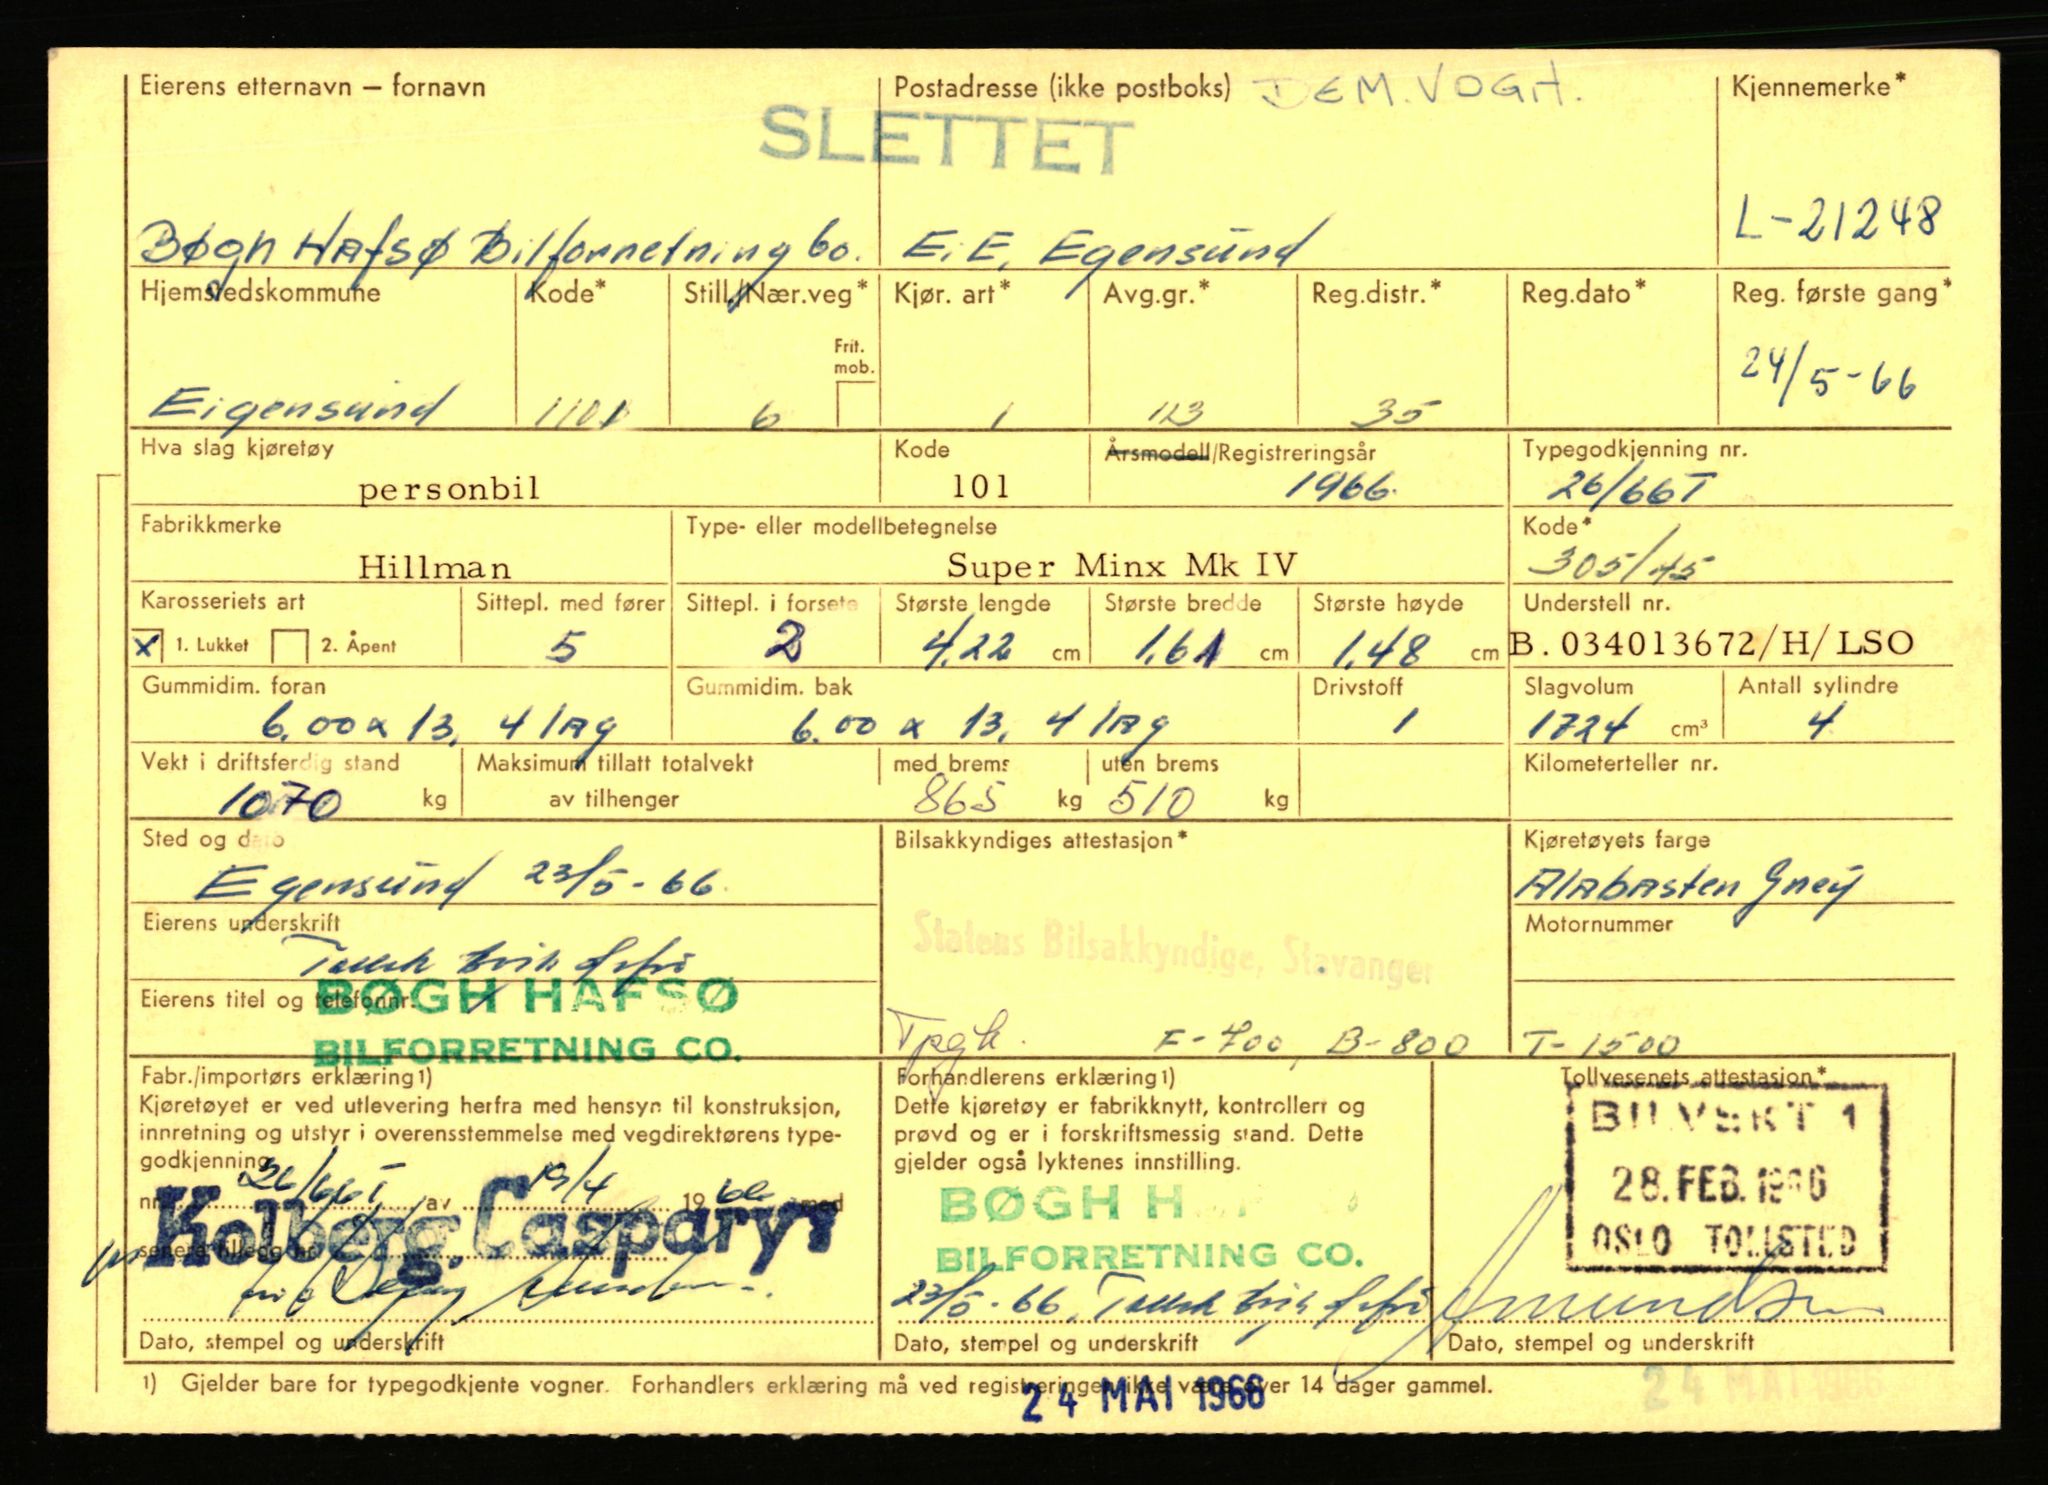 Eierens etternavn — fornavn Postadresse (ikke postboks) DEM. VOGN. Kjennemerke*
SLETTET
Bøgh Hafsø Bilforretning Co. E. E. Egersund L-21248
Hjemstedskommune Kode* Still./Nær.veg* Kjør. art* Avg.gr.* Reg.distr.* Reg.dato* Reg. første gang*
Frit. mob.
24/5-66
Eigersund 1101 6 1 113 35
Hva slag kjøretøy Kode Årsmodell/Registreringsår Typegodkjenning nr.
personbil 101 1966. 26/66T
Fabrikkmerke Type- eller modellbetegnelse Kode*
Hillman Super Minx Mk IV 305/45
Karosseriets art Sittepl. med fører Sittepl. i forsete Største lengde Største bredde Største høyde Understell nr.
x 1. Lukket 2. Åpent 5 2 4,22 cm 1,61 cm 1,48 cm B. 034013672/H/LSO
Gummidim. foran Gummidim. bak Drivstoff Slagvolum Antall sylindre
6.00 x 13, 4 lag 6.00 x 13, 4 lag 1 1724 cm³ 4
Vekt i driftsferdig stand Maksimum tillatt totalvekt med brems uten brems Kilometerteller nr.
1070 kg av tilhenger 865 kg 510 kg
Sted og dato Bilsakkyndiges attestasjon* Kjøretøyets farge
Egersund 23/5-66. Alabaster Grey
Eierens underskrift Motornummer
Statens Bilsakkyndige, Stavanger
Eierens titel og telefonnr. BØGH HAFSØ
BILFORRETNING CO.
Tpgk. F-700, B-800 T-1500
Fabr./importørs erklæring1) Forhandlerens erklæring1) Tollvesenets attestasjon*
Kjøretøyet er ved utlevering herfra med hensyn til konstruksjon, Dette kjøretøy er fabrikknytt, kontrollert og BILVERKT 1
innretning og utstyr i overensstemmelse med vegdirektørens type- prøvd og er i forskriftsmessig stand. Dette
godkjenning gjelder også lyktenes innstilling. 28. FEB. 1966
nr. 26/66T av 19/4 1966 med BØGH H
Kolberg, Caspary OSLO TOLLSTED
senere tillegg nr. BILFORRETNING CO.
23/5-66. Amundsen
Dato, stempel og underskrift Dato, stempel og underskrift Dato, stempel og underskrift
1) Gjelder bare for typegodkjente vogner. Forhandlers erklæring må ved registreringen ikke være over 14 dager gammel.
24 MAI 1966 24 MAI 1966